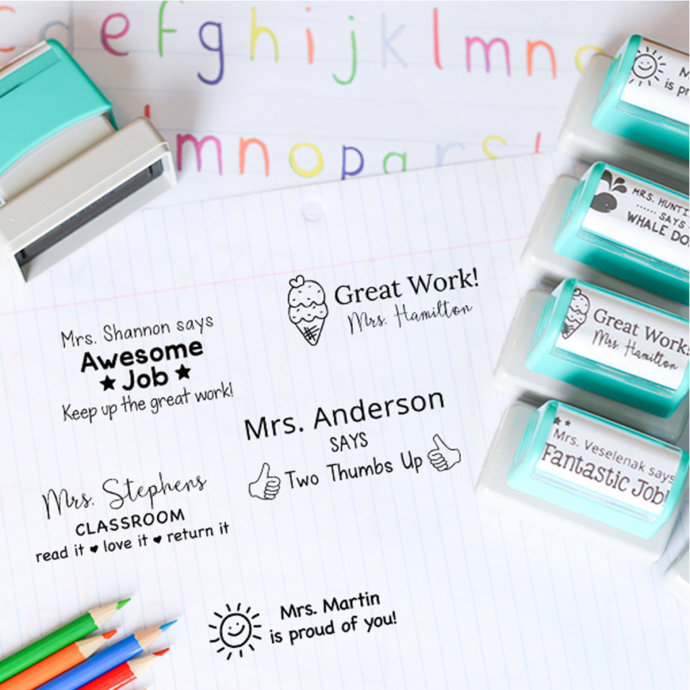 c d e f g h i j k l m n o
l m n o p q r s
M
is pr
MRS. HUNTI
...... SAYS
WHALE DO
Great Work!
Mrs Hamilton
Mrs. Veselenak says
Fantastic Job!
Great Work!
Mrs. Hamilton
Mrs. Shannon says
Awesome
★ Job ★
Keep up the great work!
Mrs. Anderson
SAYS
Two Thumbs Up
Mrs. Stephens
CLASSROOM
read it ♥ love it ♥ return it
Mrs. Martin
is proud of you!